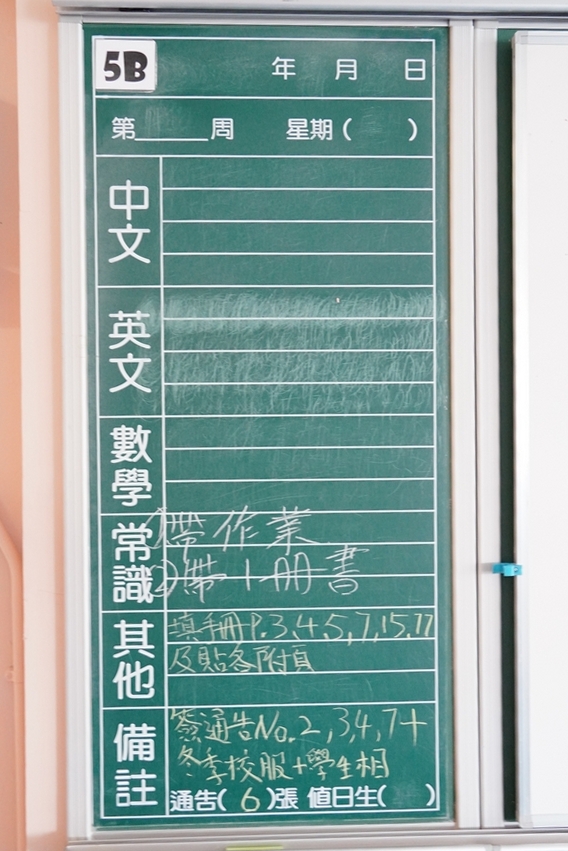 5B 年 月 日
第______周 星期( )
中文
英文
數學
常識
1)帶作業
2)帶1冊書
其他
填手冊P.3,4,5,7,15,17
及貼各附頁
備註
簽通告No.2,3,4,7+
冬季校服+學生相
通告(6)張 值日生( )